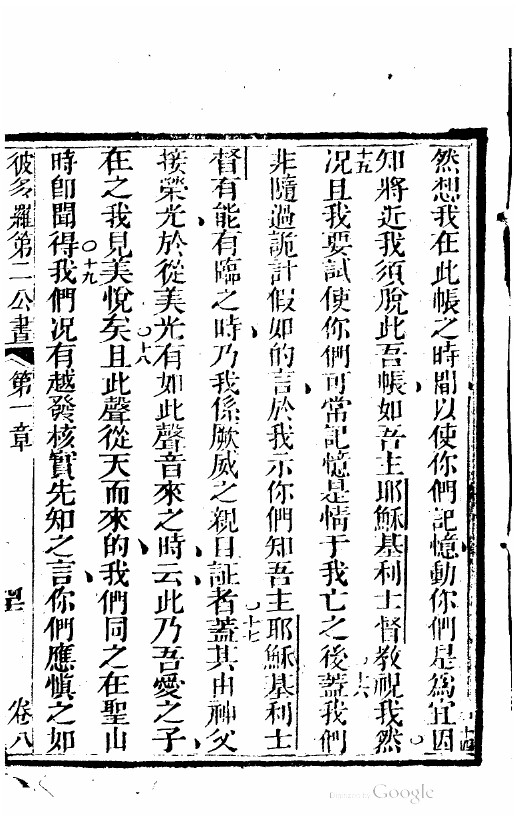 然想我在此帳之時間以使你們記憶動你們是為宜因
十四
知將近我須脫此吾帳如吾主耶穌基利士督教視我然
十五
十六
况且我要試使你們可常記憶是情于我亡之後蓋我們
非隨過詭計假如的言於我示你們知吾主耶穌基利士
督有能有臨之時乃我係厥威之親目証者蓋其由神父
十七
接榮光於從美光有如此聲音來之時云此乃吾愛之子
在之我見美悅矣且此聲從天而來的我們同之在聖山
十八
時卽聞得我們况有越發核實先知之言你們應慎之如
十九
彼多羅第二公書 第一章 卷八
Digitized by Google